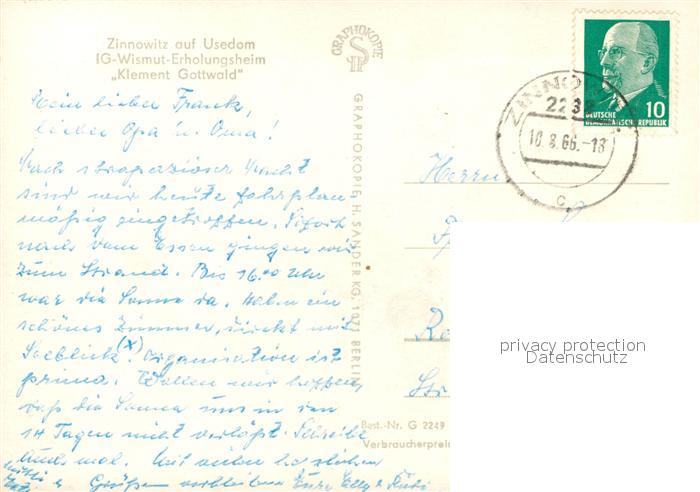 Zinnowitz auf Usedom
IG-Wismut-Erholungsheim
„Klement Gottwald"
Mein lieber Frank,
lieber Opa u. Oma!
Nach strapaziöser Nacht
sind wir heute fahrplan-
mäßig eingetroffen. Sofort
nach dem Essen gingen wir
zum Strand. Bis 16.00 Uhr
war die Sonne da. Haben ein
schönes Zimmer, direkt mit
Seeblick (x). Organisation ist
prima. Wollen wir hoffen,
daß die Sonne uns in den
14 Tagen nicht verläßt. Schreibe
auch mal. Mit vielen herzlichen
Grüßen verbleiben Eure Elly &
GRAPHOKOPIE
GRAPHOKOPIE H. SANDER KG, 1071 BERLIN
Best.-Nr. G 2249
Verbraucherprei
10
DEUTSCHE
DEMOKRATISCHE REPUBLIK
ZINNO
2238
10.8.66.-18
c
Herrn
privacy protection
Datenschutz